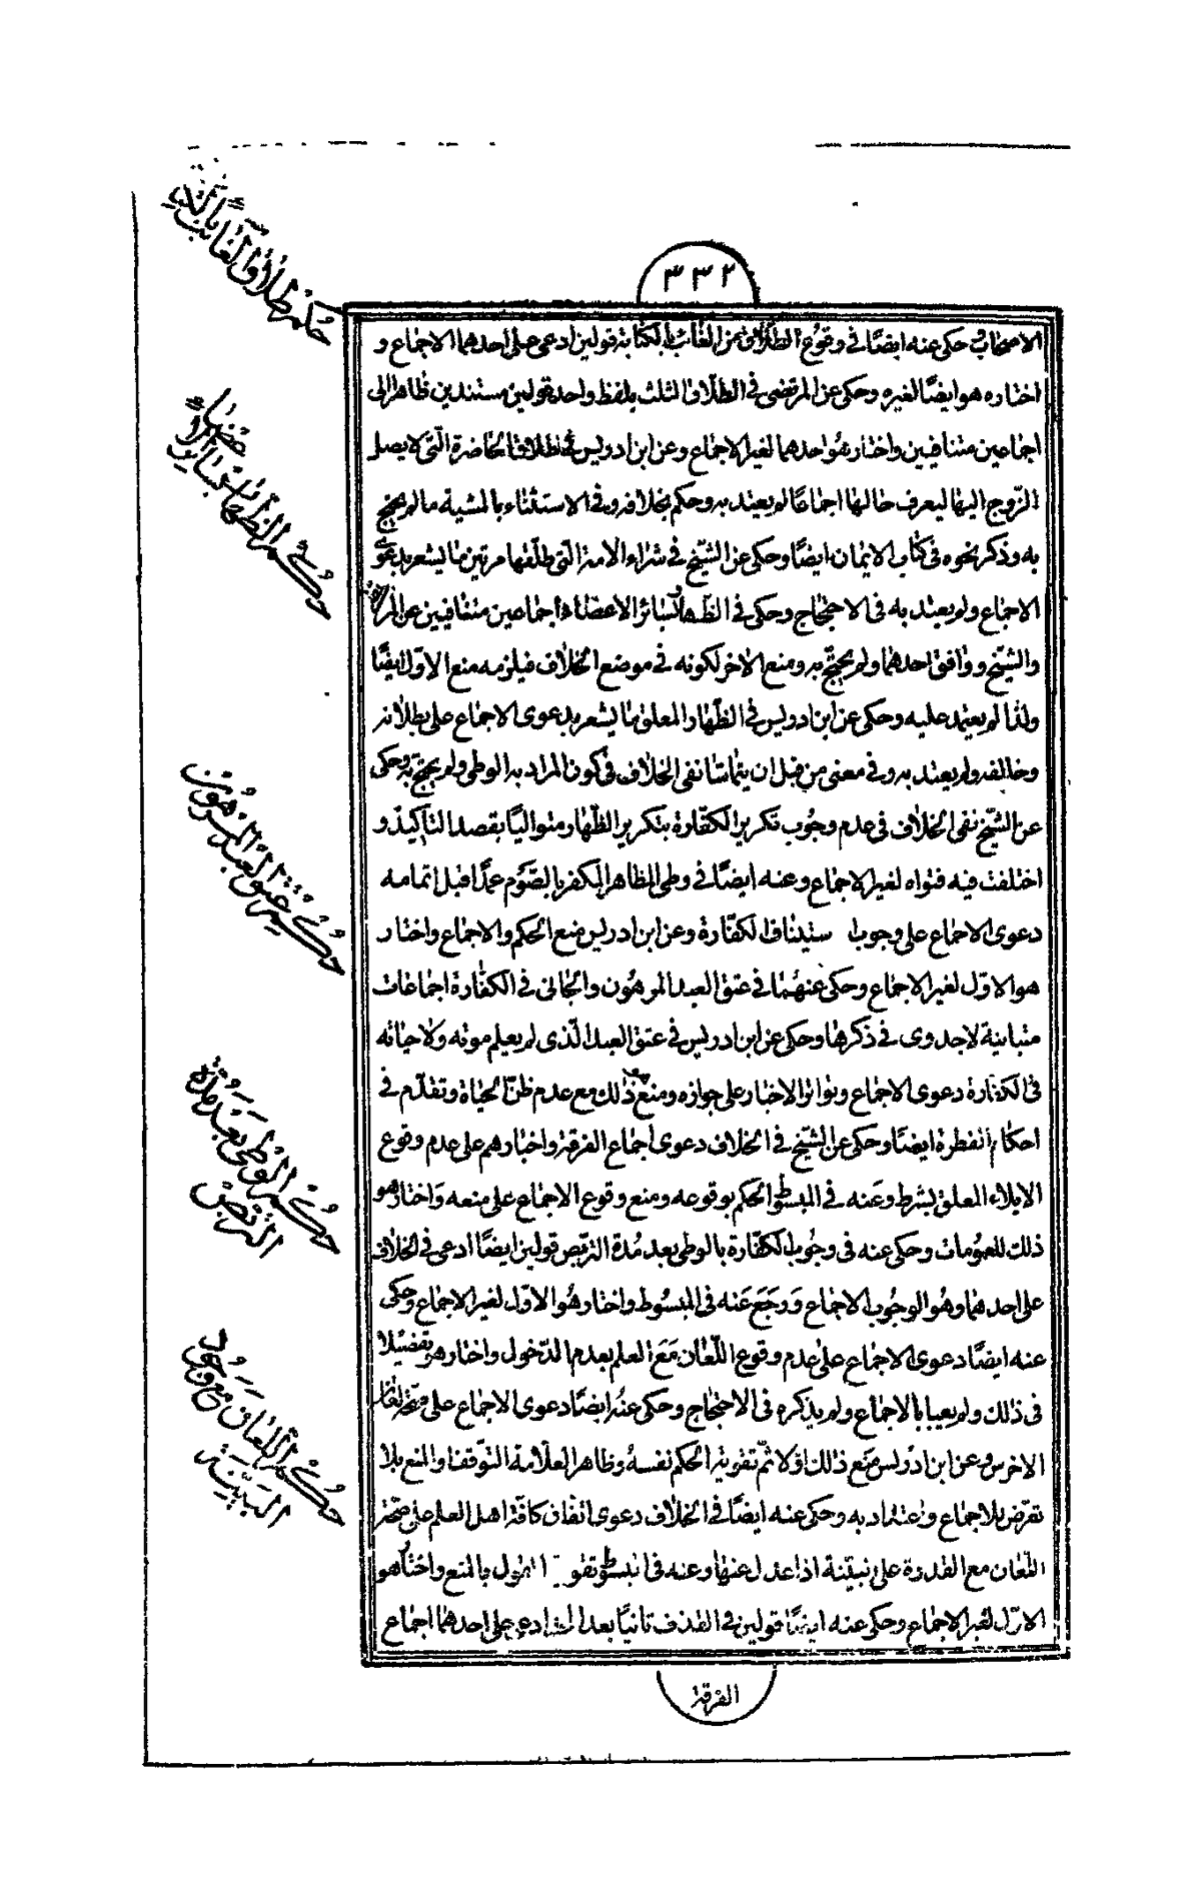 ٣٣٢
الاصحاب حكى عنه ايضًا في وقوع الطلاق من الغائب بالكتابة قولين ادعى على احدهما الاجماع و
اختاره هو ايضًا لغيره وحكى عن المرتضى في الطلاق الثلث بلفظ واحد قولين مستندين ظاهرا الى
اجماعين متنافيين واختار هو احدهما لغير الاجماع وعن ابن ادريس في طلاق الحاضرة التى لا يصل
الزوج اليها ليعرف حالها اجماعًا لم يعتد به وحكم بخلافه وفى الاستثناء بالمشية ما لم يحتج
به وذكر نحوه فى كتاب الايمان ايضًا وحكى عن الشيخ فى شراء الامة التى طلقها مرتين ما يشعر بدعوى
الاجماع ولم يعتد به فى الاحتجاج وحكى فى الظهار بسائر الاعضاء اجماعين متنافيين عن المرتضى
والشيخ ووافق احدهما ولم يحتج به ومنع الاخر لكونه فى موضع الخلاف فيلزمه منع الاول ايضًا
ولذا لم يعتمد عليه وحكى عن ابن ادريس فى الظهار المعلق ما يشعر بدعوى الاجماع على بطلانه
وخالفه ولم يعتد به وفى معنى من قبل ان يتماسا نفى الخلاف فى كون المراد به الوطى ولم يحتج به وحكى
عن الشيخ نفى الخلاف فى عدم وجوب تكرير الكفارة بتكرير الظهار متواليًا بقصد التاكيد و
اختلفت فيه فتواه لغير الاجماع وعنه ايضًا فى وطى المظاهر المكفر بالصوم عمدًا قبل اتمامه
دعوى الاجماع على وجوب ستيناف الكفارة وعن ابن ادريس منع الحكم والاجماع واختار
هو الاول لغير الاجماع وحكى عنهما فى عتق العبد المرهون والجانى فى الكفارة اجماعات
متباينة لا جدوى فى ذكرها وحكى عن ابن ادريس فى عتق العبد الذى لم يعلم موته ولا حياته
فى الكفارة دعوى الاجماع وتواتر الاخبار على جوازه ومنع ذلك مع عدم ظن الحياة وتقدم فى
احكام الفطرة ايضًا وحكى عن الشيخ فى الخلاف دعوى اجماع الفرقة واخبارهم على عدم وقوع
الايلاء المعلق بشرط وعنه فى المبسوط الحكم بوقوعه ومنع وقوع الاجماع على منعه واختار هو
ذلك للعمومات وحكى عنه فى وجوب الكفارة بالوطى بعد مدة التربص قولين ايضًا ادعى فى الخلاف
على احدهما وهو الوجوب الاجماع ورجع عنه فى المبسوط واختار هو الاول لغير الاجماع وحكى
عنه ايضًا دعوى الاجماع على عدم وقوع اللعان مع العلم بعدم الدخول واختار هو تفصيلا
فى ذلك ولم يعبا بالاجماع ولم يذكره فى الاحتجاج وحكى عنه ايضًا دعوى الاجماع على صحة لعان
الاخرس وعن ابن ادريس منع ذلك اولا ثم تقوية الحكم نفسه وظاهر العلامة التوقف او المنع بلا
تعرض للاجماع واعتداد به وحكى عنه ايضًا فى الخلاف دعوى اتفاق كافة اهل العلم على صحة
اللعان مع القدرة على بينة اذا عدل عنها وعنه فى المبسوط القول بالمنع واختار هو
الاول لغير الاجماع وحكى عنه ايضًا قولين فى القذف ثانيًا بعد ادعى على احدهما اجماع
الفرقة
حكم طلاق الغائب بالكتابة
حكم الظهار بسائر الاعضاء
حكم عتق العبد المرهون
حكم الوطى بعد مدة
التربص
حكم اللعان مع وجود
البينة